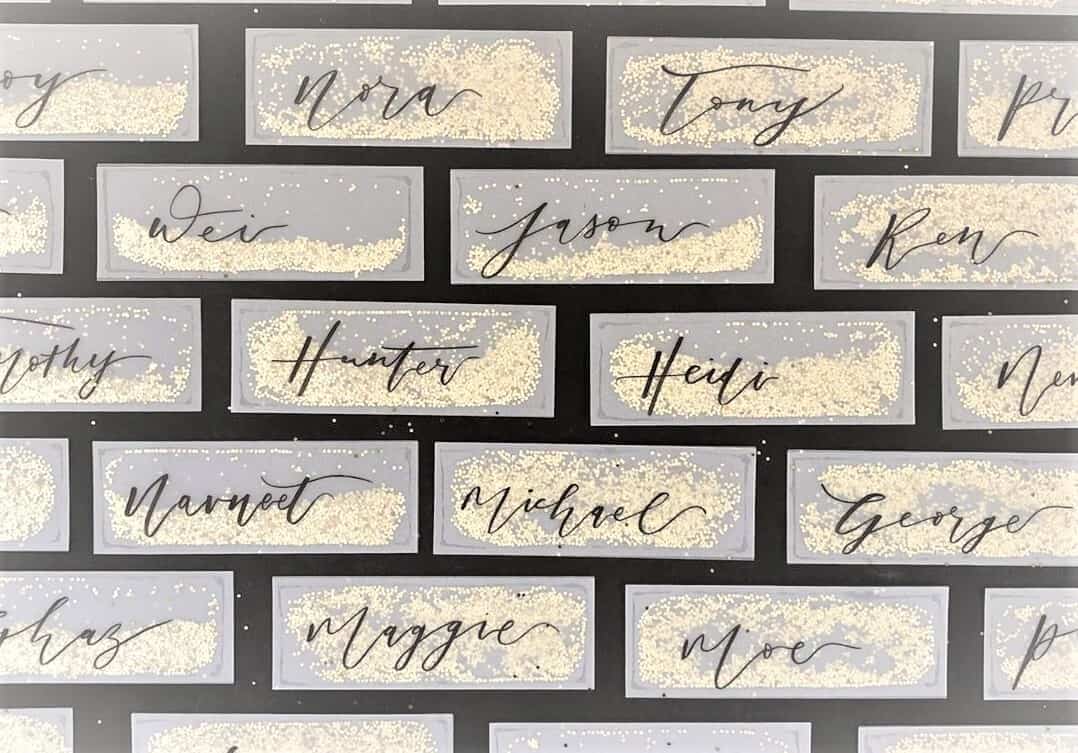 oy Nora Tony Pr
Wei Jason Ren
mothy Hunter Heidi Nen
Navneet Michael George
ghaz Maggie Moe P